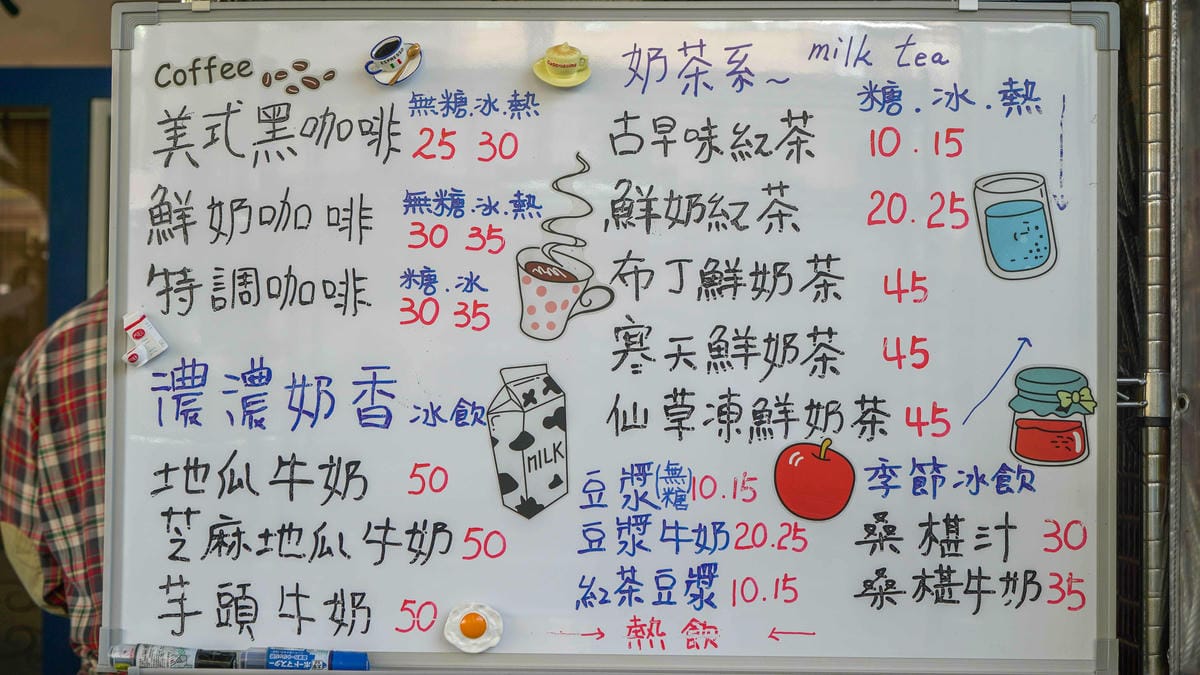 Coffee
美式黑咖啡 無糖.冰.熱 25 30
鮮奶咖啡 無糖.冰.熱 30 35
特調咖啡 糖.冰 30 35
濃濃奶香 冰飲
地瓜牛奶 50
芝麻地瓜牛奶 50
芋頭牛奶 50
MILK
奶茶系~ milk tea
糖.冰.熱
古早味紅茶 10.15
鮮奶紅茶 20.25
布丁鮮奶茶 45
寒天鮮奶茶 45
仙草凍鮮奶茶 45
豆漿(無糖)10.15
豆漿牛奶20.25
紅茶豆漿 10.15
→ 熱飲 ←
季節冰飲
桑椹汁 30
桑椹牛奶 35